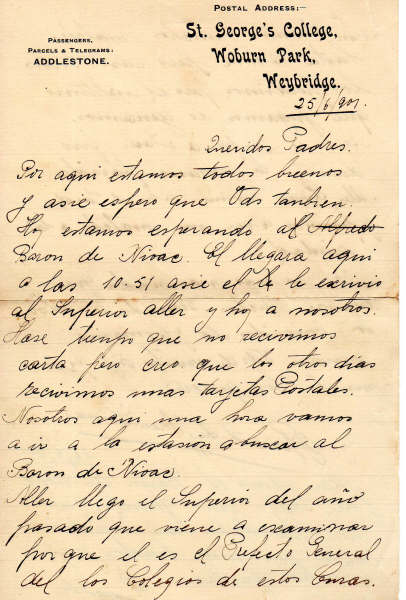 POSTAL ADDRESS:—
St. George's College,
Woburn Park,
Weybridge.
PASSENGERS,
PARCELS & TELEGRAMS:
ADDLESTONE.
25/6/901.
Queridos Padres.
Por aqui estamos todos buenos
y asie espero que Vds tanbien.
Hoy estamos esperando al Alfredo
Baron de Nioac. El llegara aqui
a las 10.51 asie el le le escrivio
al Superior aller y hoy a nosotros.
Hase tienpo que no recivimos
carta pero creo que los otros dias
recivimos unas tarjetas Postales.
Nosotros aqui una hora vamos
a ir a la estasion a buscar al
Baron de Nioac.
Aller llego el Superior del año
pasado que viene a examinar
por que el es el Prefecto General
del los Colegios de estos Curas.